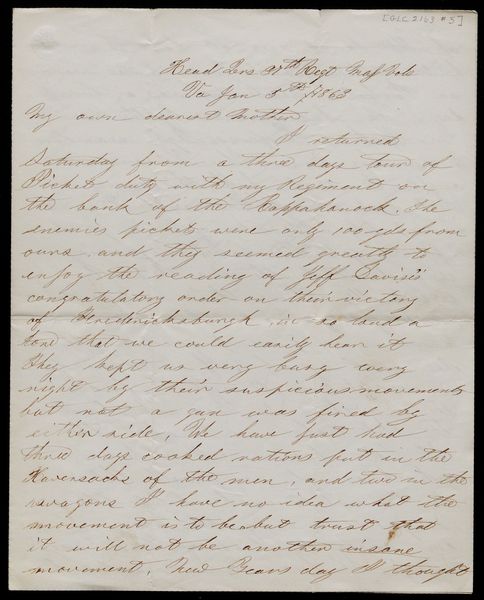 [GLC 2163 #3]
Head Qrs 37th Regt Mass Vols
Va Jan 5th /1863
My own dearest Mother
I returned
Saturday from a three days tour of
Picket duty with my Regiment on
the bank of the Rappahanock. The
enemies pickets were only 100 yds from
ours, and they seemed greatly to
enjoy the reading of Jeff Davis's
congratulatory order on their victory
of Fredericksburgh, in so loud a
tone that we could easily hear it
They kept us very busy every
night by their suspicious movements
but not a gun was fired by
either side, We have just had
three days cooked rations put in the
Haversacks of the men, and two in the
wagons I have no idea what the
movement is to be but trust that
it will not be another insane
movement, New Years day I thought